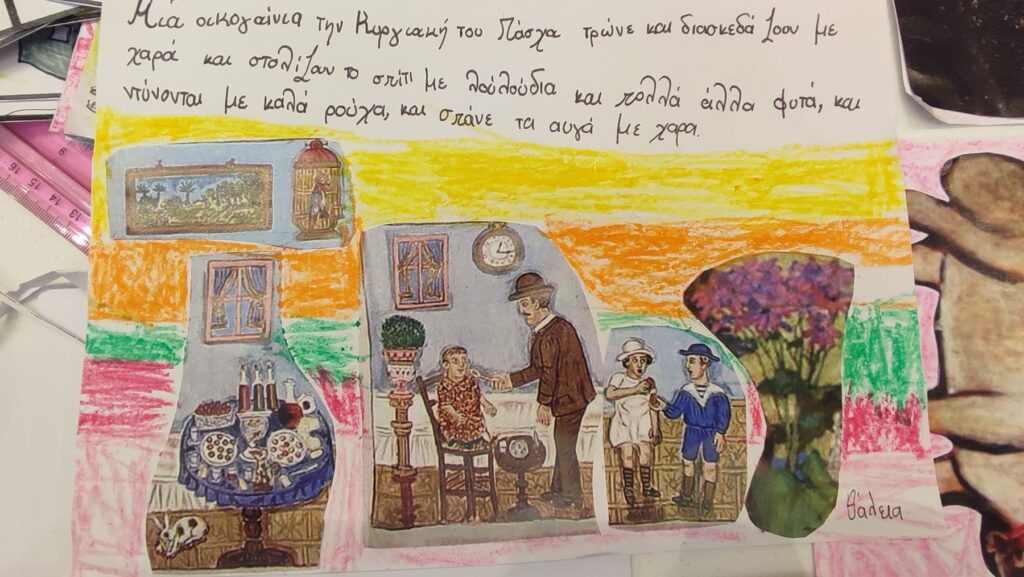 Μιά οικογαίνια την Κυργιακή του Πάσχα τρώνε και διασκεδάζουν με
χαρά και στολίζαν το σπίτι με λουλούδια και πολλά άλλα φυτά, και
ντύνονται με καλά ρούχα, και σπάνε τα αυγά με χαρα.
θάλεια
9
16
15
14
13